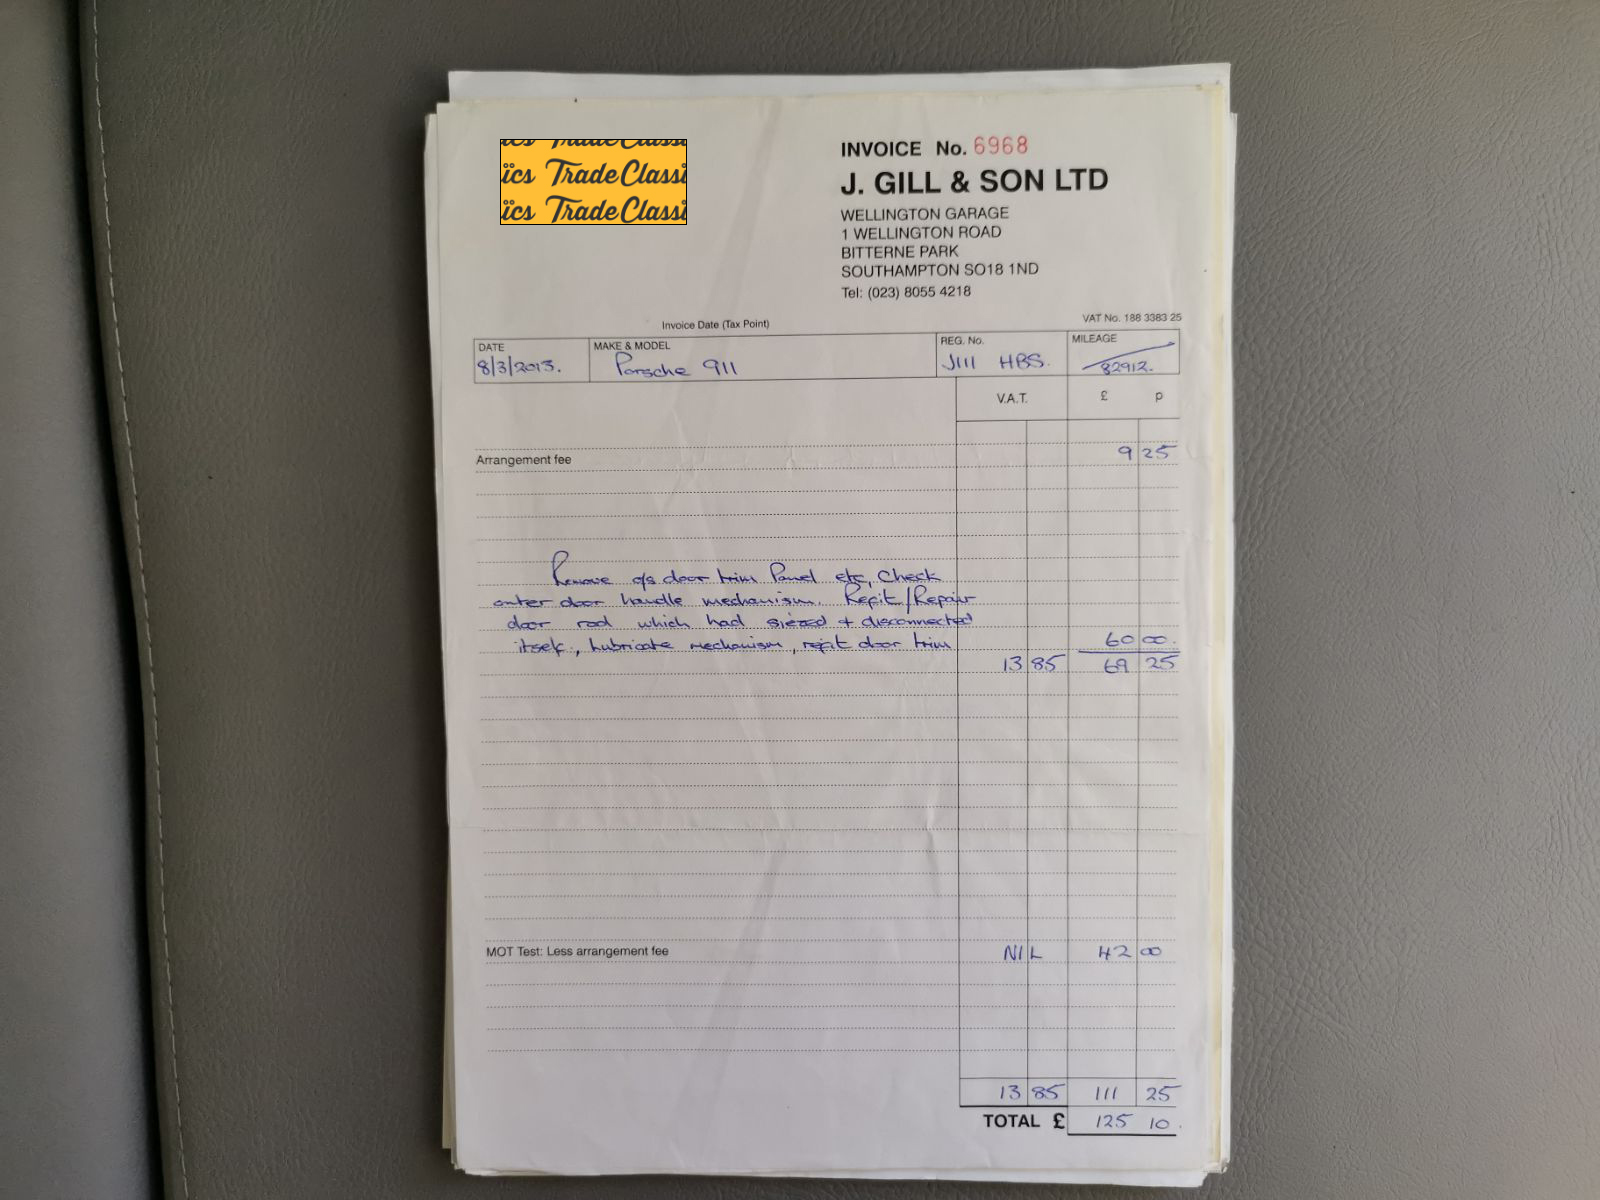 ics TradeClassi
ics TradeClassi
ics TradeClassi
INVOICE No. 6968
J. GILL & SON LTD
WELLINGTON GARAGE
1 WELLINGTON ROAD
BITTERNE PARK
SOUTHAMPTON SO18 1ND
Tel: (023) 8055 4218
Invoice Date (Tax Point)
VAT No. 188 3383 25
DATE MAKE & MODEL REG. No. MILEAGE
8/3/2013. Porsche 911 J111 HBS. 82912.
V.A.T. £ p
Arrangement fee 9 25
Remove o/s door trim Panel etc, Check
outer door handle mechanism. Refit/Repair
door rod which had siezed + disconnected
itself, lubricate mechanism, refit door trim 60 00.
13 85 69 25
MOT Test: Less arrangement fee NIL 42 00
13 85 111 25
TOTAL £ 125 10.